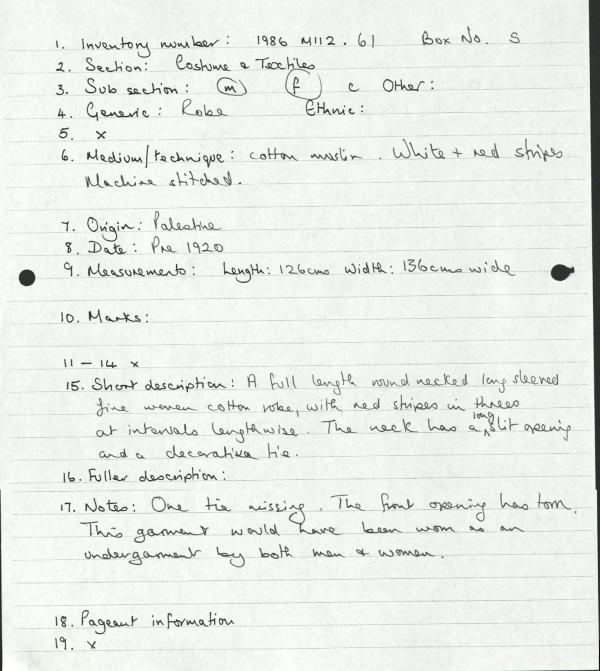 1. Inventory number: 1986 M112.61 Box No. S
2. Section: Costume & Textiles
3. Sub section: m f c Other:
4. Generic: Robe Ethnic:
5. x
6. Medium/technique: cotton muslin. White + red stripes
Machine stitched.
7. Origin: Palestine
8. Date: Pre 1920
9. Measurements: Length: 126cms Width: 136cms wide
10. Marks:
11 - 14 x
15. Short description: A full length round necked long sleeved
fine woven cotton robe, with red stripes in threes
at intervals lengthwise. The neck has a long slit opening
and a decorative tie.
16. Fuller description:
17. Notes: One tie missing. The front opening has torn.
This garment would have been worn as an
undergarment by both men & women.
18. Pageant information
19. x